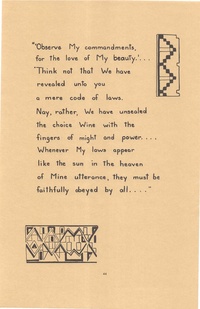 "'Observe My commandments,
for the love of My beauty.'...
'Think not that We have
revealed unto you
a mere code of laws.
Nay, rather, We have unsealed
the choice Wine with the
fingers of might and power....
Whenever My laws appear
like the sun in the heaven
of Mine utterance, they must be
faithfully obeyed by all...."